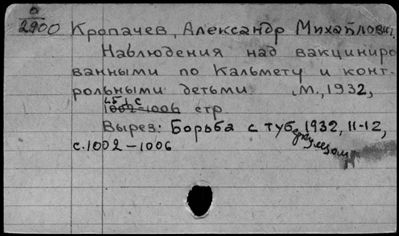 а
2900
Кропачев, Александр Михайлович.
Наблюдения над вакциниро
ванными по Кальмету и конт-
рольными детьми. М., 1932,
1002-1006 стр
Вырез: Борьба с туберкулезом, 1932, 11-12,
с. 1002-1006